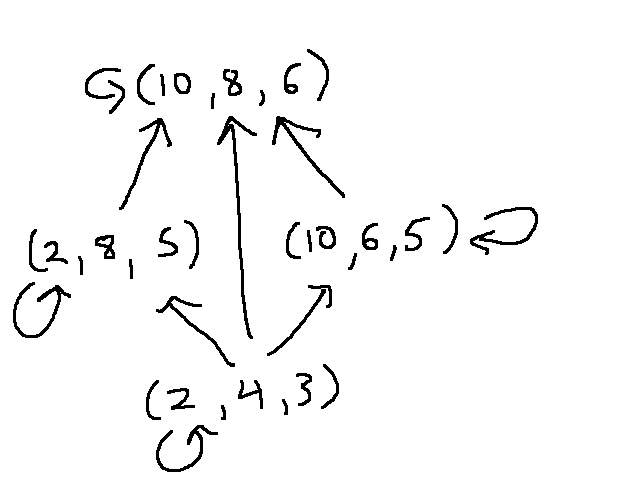 (10, 8, 6)
(2, 8, 5) (10, 6, 5)
(2, 4, 3)